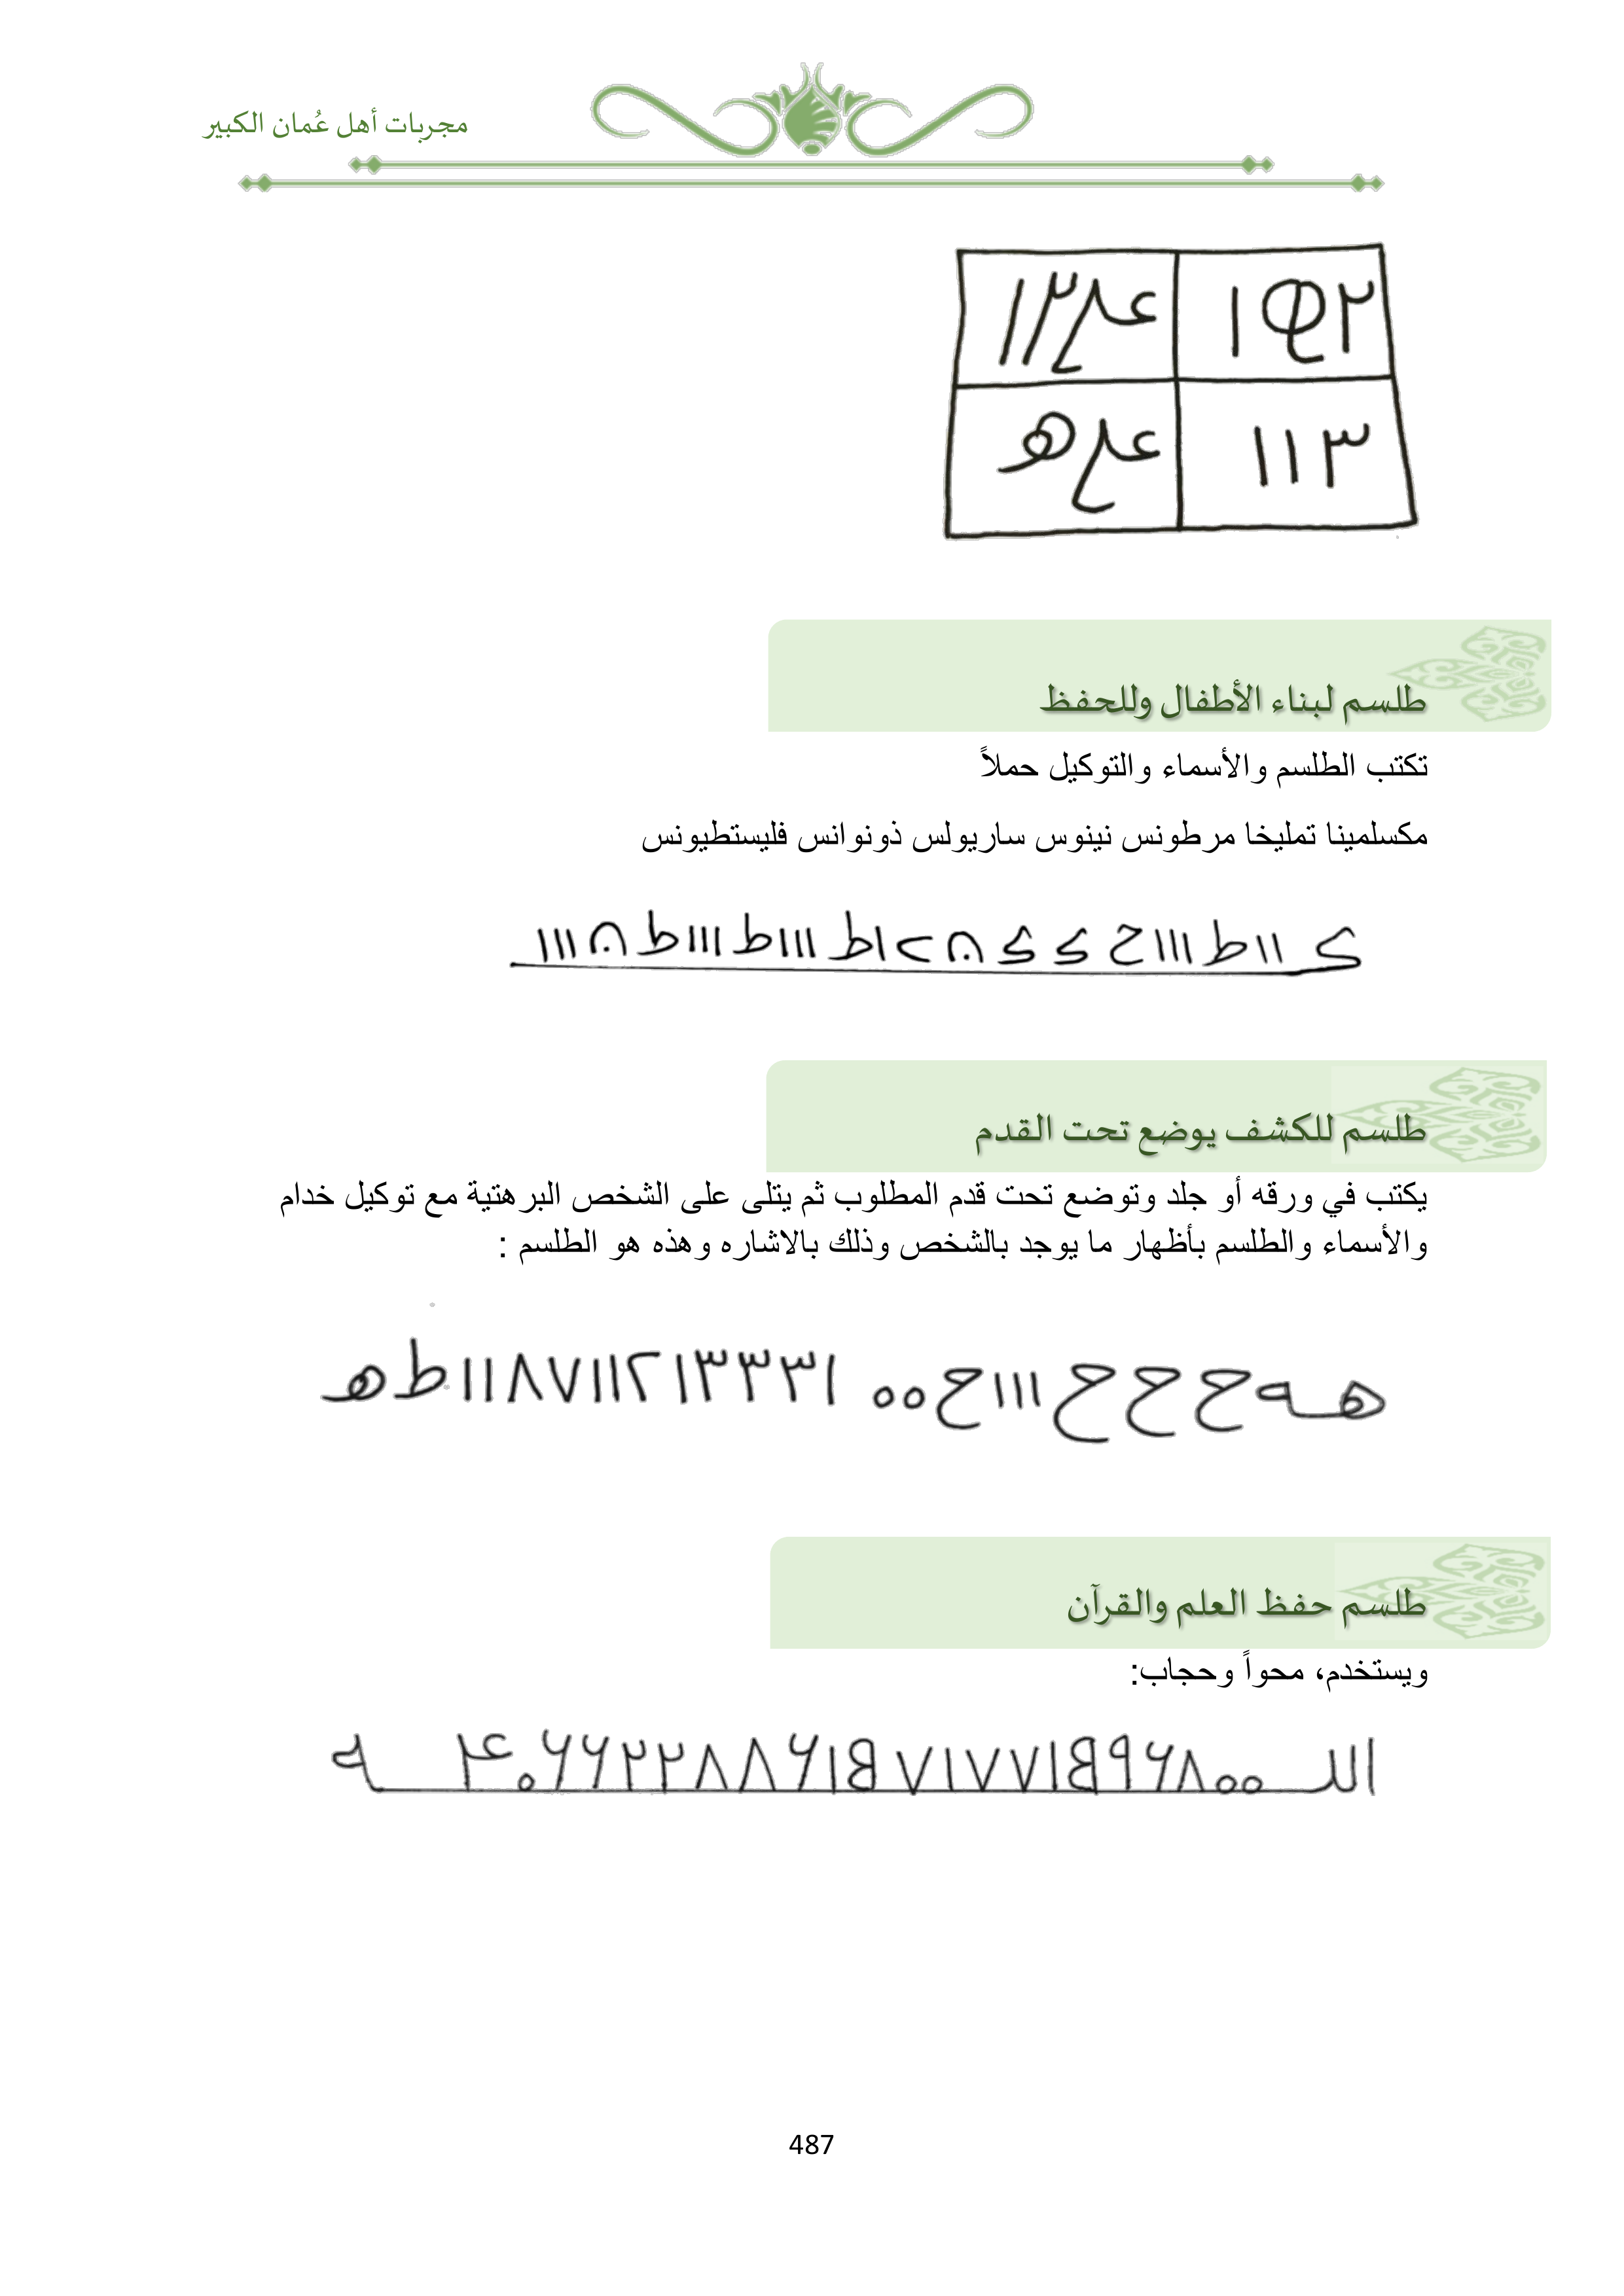 مجربات أهل عُمان الكبير
١ ٢
١١٣
طلسم لبناء الأطفال وللحفظ
تكتب الطلسم والأسماء والتوكيل حملاً
مكسلمينا تمليخا مرطونس نينوس ساريولس ذونوانس فليستطيونس
طلسم للكشف يوضع تحت القدم
يكتب في ورقه أو جلد وتوضع تحت قدم المطلوب ثم يتلى على الشخص البرهتية مع توكيل خدام
والأسماء والطلسم بأظهار ما يوجد بالشخص وذلك بالاشاره وهذه هو الطلسم :
هـه ح ح ح ااا ح ٥٥ ا٣٣٣١٢١١٧٨١١ ط ه
طلسم حفظ العلم والقرآن
ويستخدم، محواً وحجاب:
487